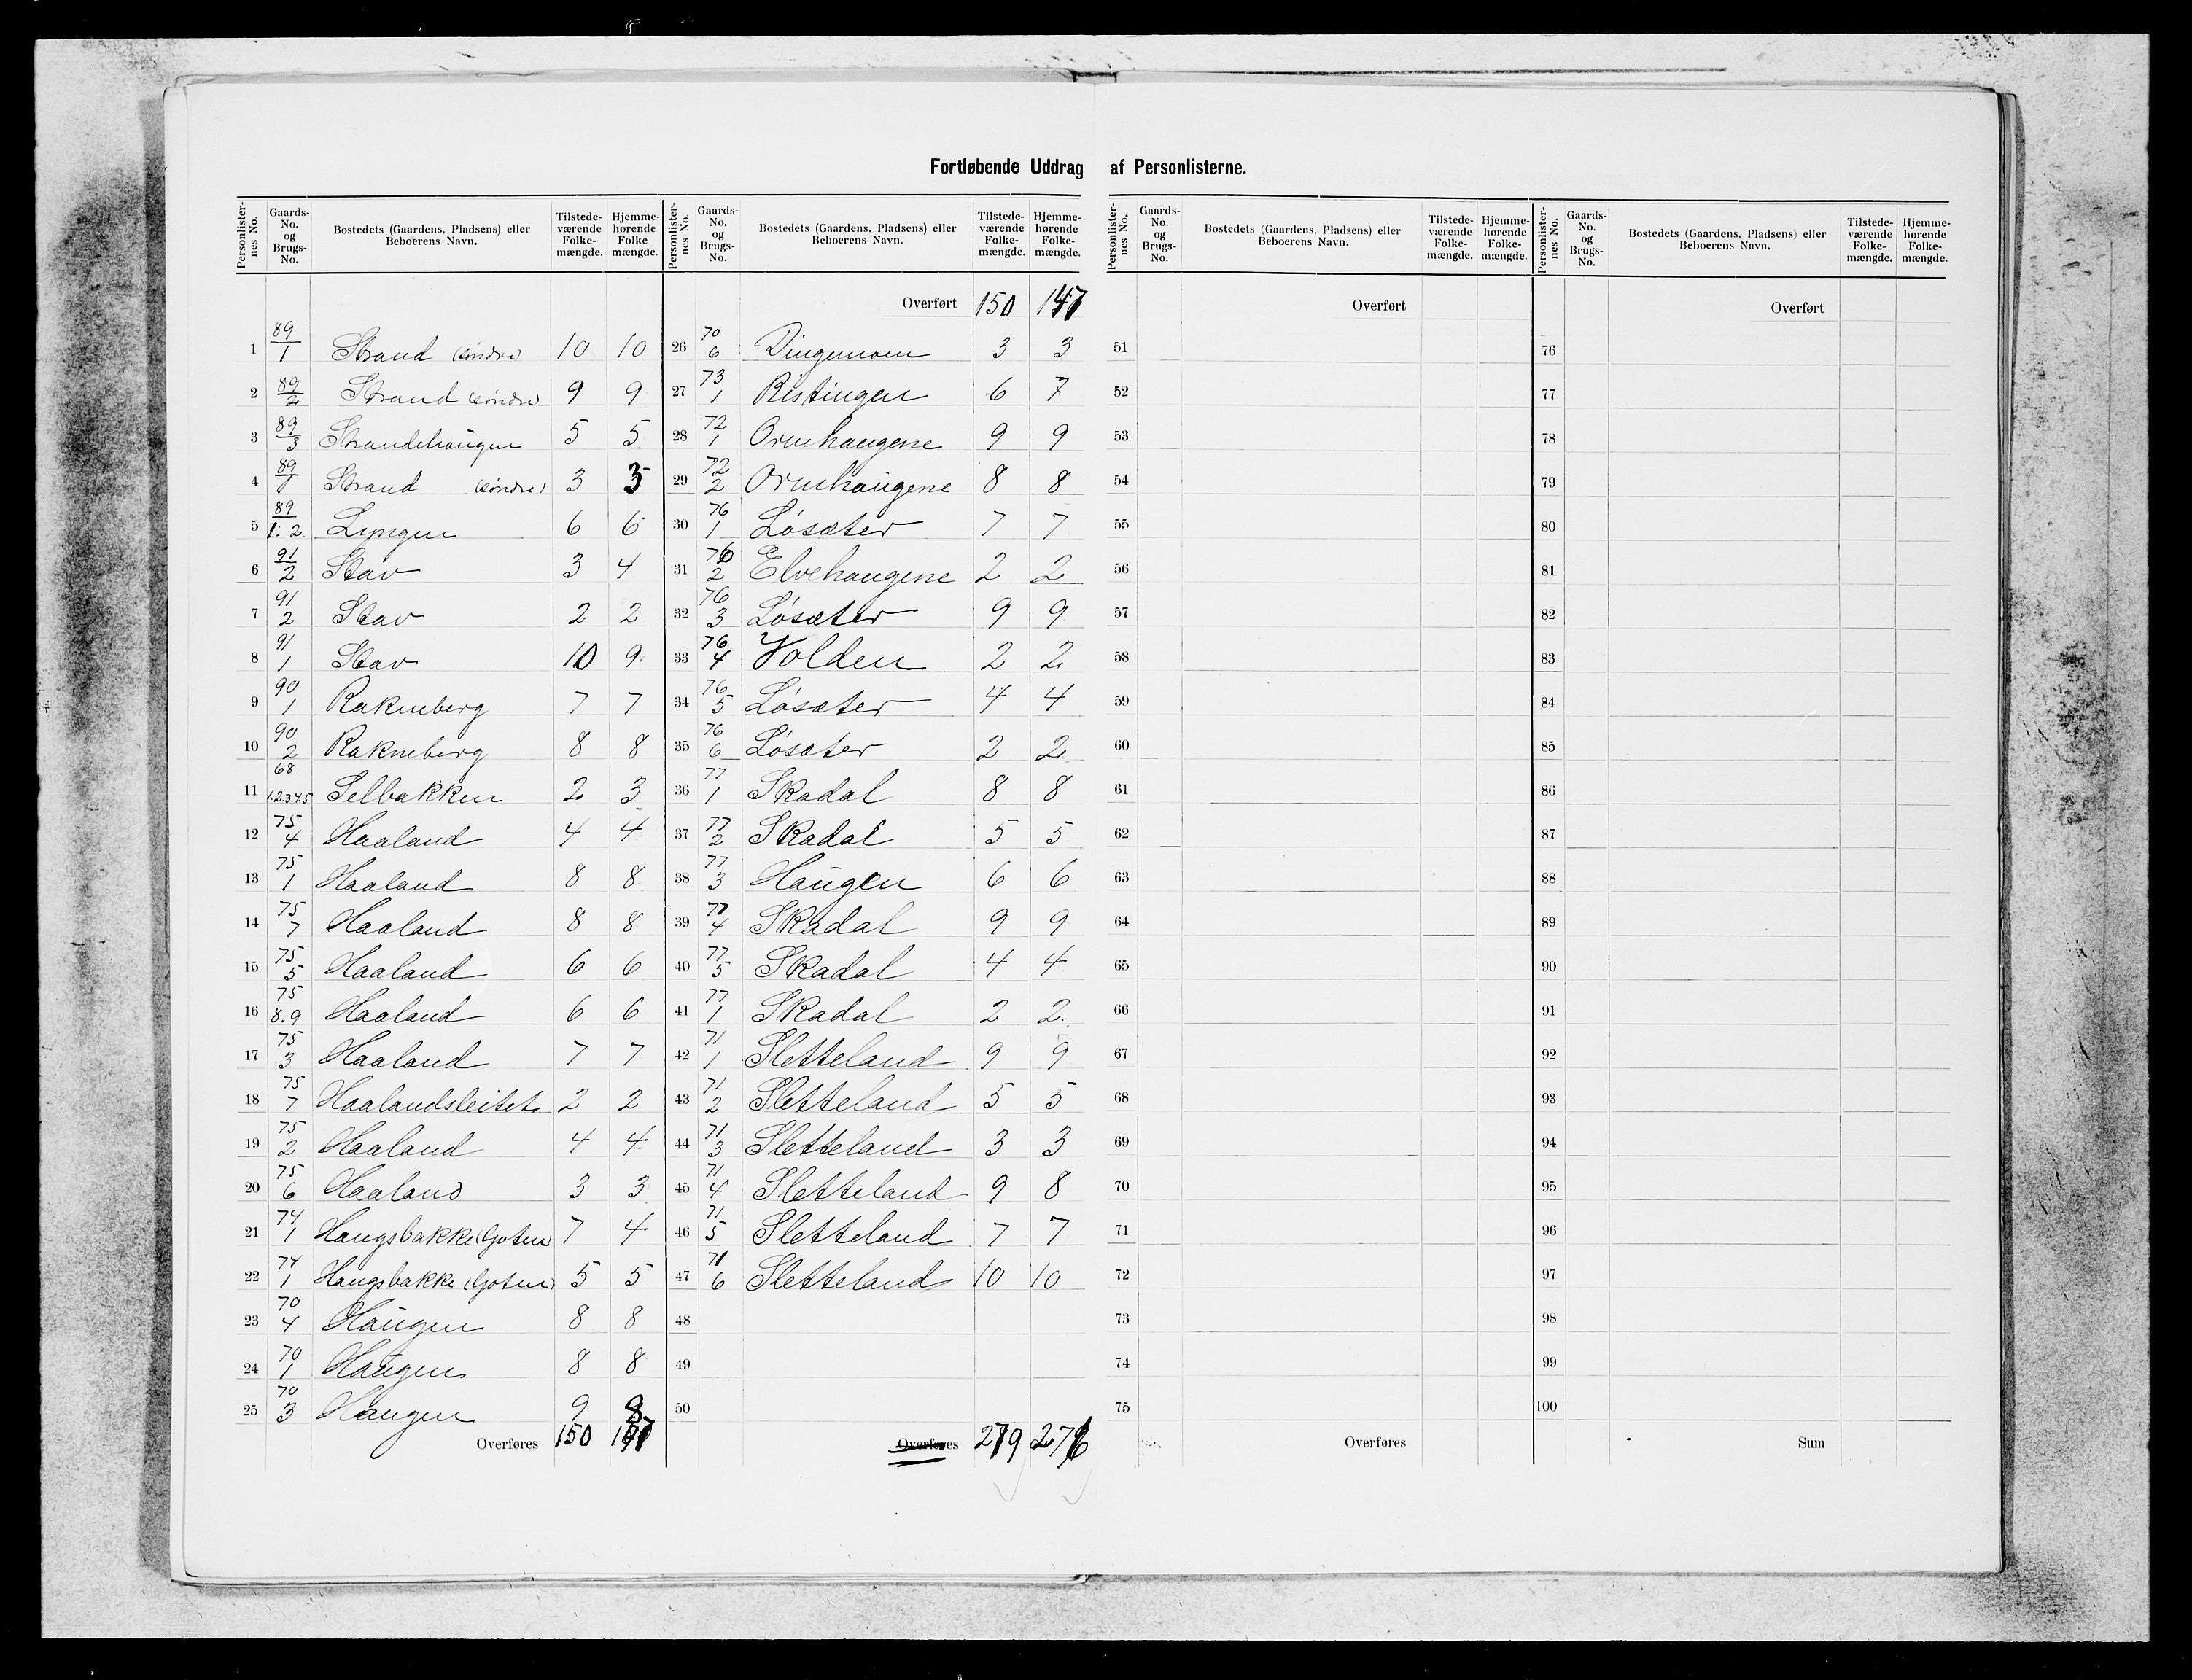 Fortløbende Uddrag af Personlisterne.
Personlister-nes No. | Gaards-No. og Brugs-No. | Bostedets (Gaardens, Pladsens) eller Beboerens Navn. | Tilstede-værende Folke-mængde. | Hjemme-hørende Folke mængde.
1 89/1 Strand (søndre) 10 10
2 89/2 Strand (søndre) 9 9
3 89/3 Strandehaugen 5 5
4 89/1 Strand (søndre) 3 3
5 89/1.2 Lyngen 6 6
6 91/2 Stav 3 4
7 91/2 Stav 2 2
8 91/1 Stav 10 9
9 90/1 Rakneberg 7 7
10 90/2 Rakneberg 8 8
11 68/1.2.3.4.5 Selbakken 2 3
12 75/4 Haaland 4 4
13 75/1 Haaland 8 8
14 75/7 Haaland 8 8
15 75/5 Haaland 6 6
16 75/8.9 Haaland 6 6
17 75/3 Haaland 7 7
18 75/7 Haalandsleitet 2 2
19 75/2 Haaland 4 4
20 75/6 Haaland 3 3
21 74/1 Haugsbakke (Goten) 7 4
22 74/1 Haugsbakke (Goten) 5 5
23 70/4 Haugen 8 8
24 70/1 Haugen 8 8
25 70/3 Haugen 9 8
Overføres 150 147
Personlister-nes No. | Gaards-No. og Brugs-No. | Bostedets (Gaardens, Pladsens) eller Beboerens Navn. | Tilstede-værende Folke-mængde. | Hjemme-hørende Folke-mængde.
Overført 150 147
26 70/6 3 3
27 73/1 Ristingen 6 7
28 72/1 Ormhaugene 9 9
29 72/2 Ormhaugene 8 8
30 76/1 Løsæter 7 7
31 76/2 Elvehaugene 2 2
32 76/3 Løsæter 9 9
33 76/4 Volden 2 2
34 76/5 Løsæter 4 4
35 76/6 Løsæter 2 2
36 77/1 Skadal 8 8
37 77/2 Skadal 5 5
38 77/3 Haugen 6 6
39 77/4 Skadal 9 9
40 77/5 Skadal 4 4
41 77/1 Skadal 2 2
42 71/1 Sletteland 9 9
43 71/2 Sletteland 5 5
44 71/3 Sletteland 3 3
45 71/4 Sletteland 9 8
46 71/5 Sletteland 7 7
47 71/6 Sletteland 10 10
48
49
50
Overføres 279 276
Personlister-nes No. | Gaards-No. og Brugs-No. | Bostedets (Gaardens, Pladsens) eller Beboerens Navn. | Tilstede-værende Folke-mængde. | Hjemme-hørende Folke-mængde.
Overført
51
52
53
54
55
56
57
58
59
60
61
62
63
64
65
66
67
68
69
70
71
72
73
74
75
Overføres
Personlister-nes No. | Gaards-No. og Brugs-No. | Bostedets (Gaardens, Pladsens) eller Beboerens Navn. | Tilstede-værende Folke-mængde. | Hjemme-hørende Folke-mængde.
Overført
76
77
78
79
80
81
82
83
84
85
86
87
88
89
90
91
92
93
94
95
96
97
98
99
100
Sum